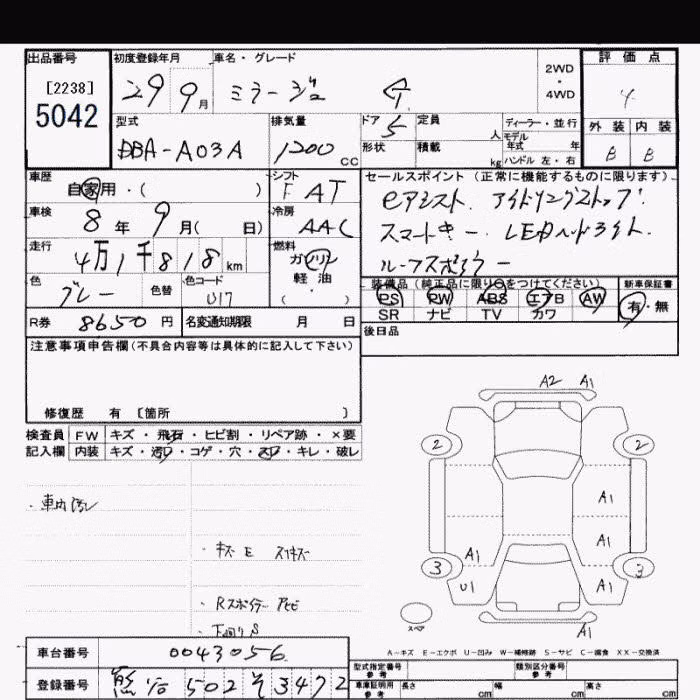 出品番号 初度登録年月 車名・グレード 2WD・4WD 評価点
[2238]
5042
29 9月 ミラージュ G 4
型式 排気量 ドア 5 定員 人 ディーラー・並行 外装 内装
DBA-A03A 1200 CC 形状 積載 kg モデル年式 年 ハンドル 左・右 B B
車歴 シフト セールスポイント(正常に機能するものに限ります)
自家用・( ) F AT eアシスト. アイドリングストップ.
車検 冷房 スマートキー. LEDヘッドライト.
8年 9月( 日) AAC ルーフスポイラー
走行 燃料
4万1千818km ガソリン 軽油・( )
色 色替 色コード 装備品(純正品に限り○をつけてください) 新車保証書
グレー U17 PS PW ABS エアB AW 有・無
SR ナビ TV カワ
R券 8650円 名変通知期限 月 日 後日品
注意事項申告欄(不具合内容等は具体的に記入して下さい)
修復歴 有 〔箇所 〕
検査員 FW キズ・飛石・ヒビ割・リペア跡・×要
記入欄 内装 キズ・汚れ・コゲ・穴・スレ・キレ・破レ
A2 A1
2 2
・車内汚レ
A1
A1 A1
・キズ E スリキズ
3 3
U1 A1
・Rスポイラー
・下廻りS
スペア
A1
A-キズ E-エクボ U-凹み W-補修跡 S-サビ C-腐食 XX-交換済
車台番号 0043056 型式指定番号 参考 類別区分番号 参考
登録番号 502 そ 3472 車庫証明用 参考 長さ cm 幅 cm 高さ cm